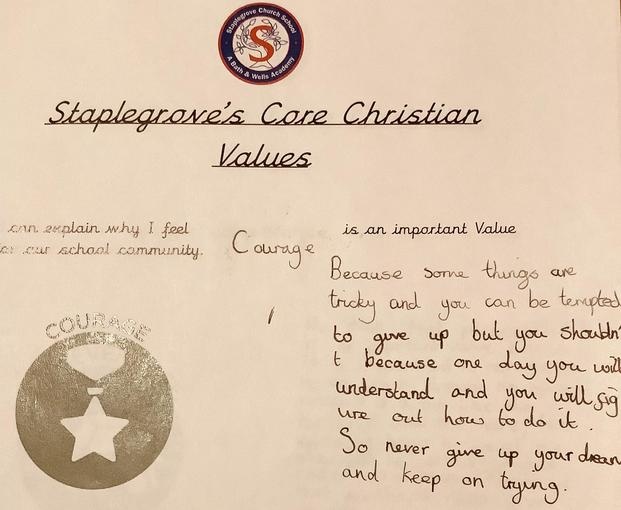 Staplegrove Church School
S
A Bath & Wells Academy
Staplegrove's Core Christian
Values
can explain why I feel
our school community.
Courage
is an important Value
Because some things are
tricky and you can be tempted
to give up but you shouldn'
t because one day you will
understand and you will fig
ure out how to do it.
So never give up your dream
and keep on trying.
COURAGE